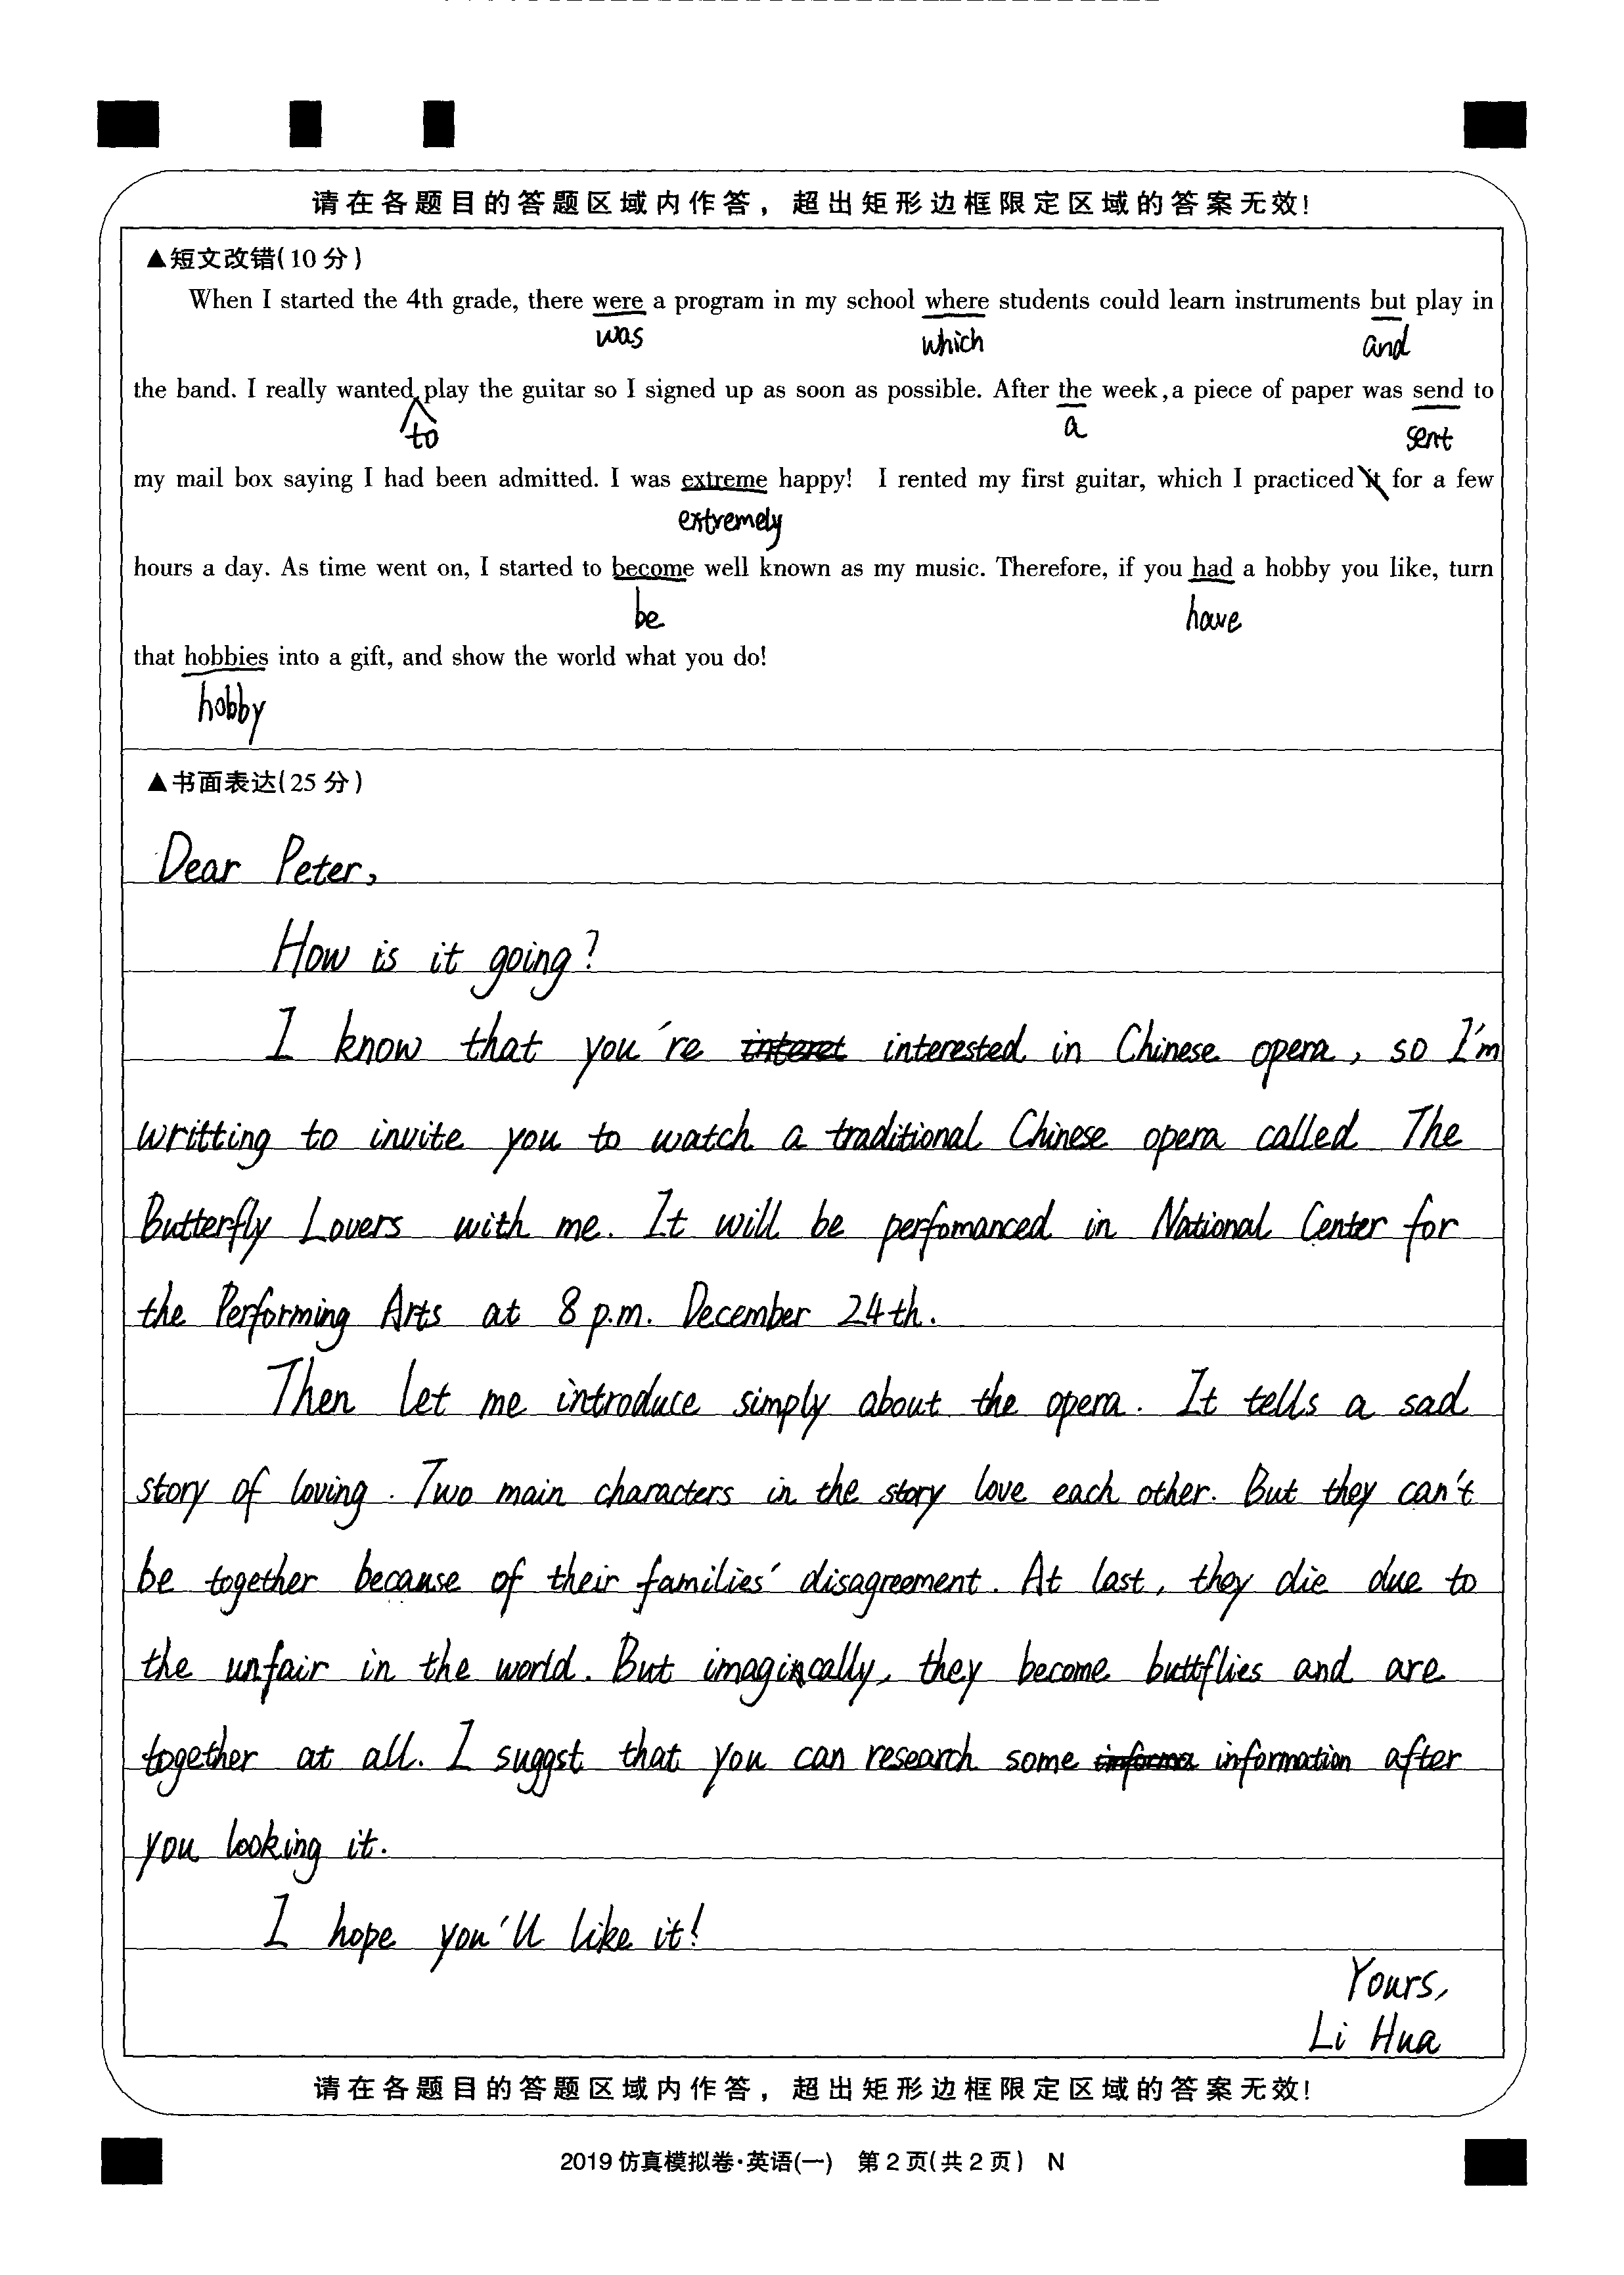 请在各题目的答题区域内作答，超出矩形边框限定区域的答案无效!
▲短文改错(10分)
When I started the 4th grade, there were a program in my school where students could learn instruments but play in
was which and
the band. I really wanted play the guitar so I signed up as soon as possible. After the week,a piece of paper was send to
to a sent
my mail box saying I had been admitted. I was extreme happy! I rented my first guitar, which I practiced it for a few
extremely
hours a day. As time went on, I started to become well known as my music. Therefore, if you had a hobby you like, turn
be have
that hobbies into a gift, and show the world what you do!
hobby
▲书面表达(25分)
Dear Peter,
How is it going?
I know that you're interet interested in Chinese opera, so I'm
writting to invite you to watch a traditional Chinese opera called The
Butterfly Lovers with me. It will be perfomanced in National Center for
the Performing Arts at 8 p.m. December 24th.
Then let me introduce simply about the opera. It tells a sad
story of loving. Two main characters in the story love each other. But they can't
be together because of their families' disagreement. At last, they die due to
the unfair in the world. But imagincally, they become buttflies and are
together at all. I suggst that you can research some informa information after
you looking it.
I hope you'll like it!
Yours,
Li Hua
请在各题目的答题区域内作答，超出矩形边框限定区域的答案无效!
2019仿真模拟卷·英语(一) 第2页(共2页) N